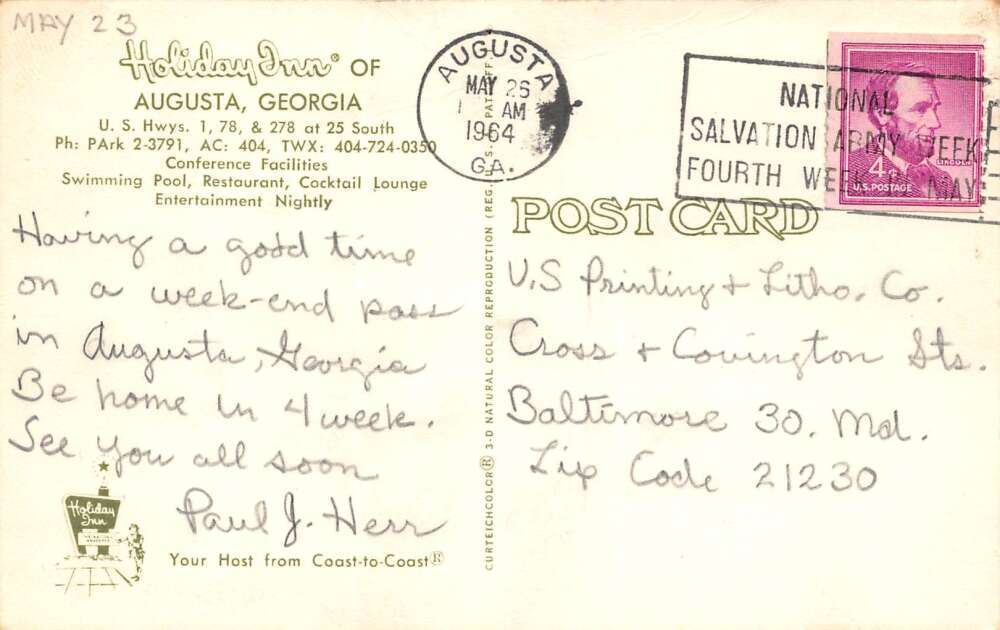 MAY 23
Holiday Inn® OF
AUGUSTA, GEORGIA
U. S. Hwys. 1, 78, & 278 at 25 South
Ph: PArk 2-3791, AC: 404, TWX: 404-724-0350
Conference Facilities
Swimming Pool, Restaurant, Cocktail Lounge
Entertainment Nightly
Having a good time
on a week-end pass
in Augusta, Georgia
Be home in 4 week.
See you all soon
Paul J. Herr
Holiday
Inn
Your Host from Coast-to-Coast®
CURTEICHCOLOR® 3-D NATURAL COLOR REPRODUCTION (REG. U.S. PAT. OFF.
AUGUSTA
MAY 26
AM
1964
GA.
NATIONAL
SALVATION ARMY WEEK
FOURTH WEEK IN MAY
LINCOLN
4¢
U.S. POSTAGE
POST CARD
U.S Printing & Litho. Co.
Cross & Covington Sts.
Baltimore 30. Md.
Zip Code 21230